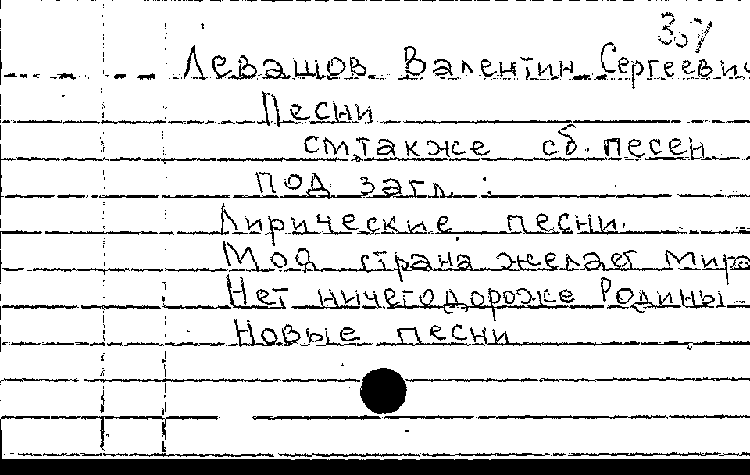 Левашов Валентин Сергеевич
Песни
см.также сб. песен
под загл. :
Лирические песни.
Моя страна желает мира
Нет ничего дороже Родины
Новые песни